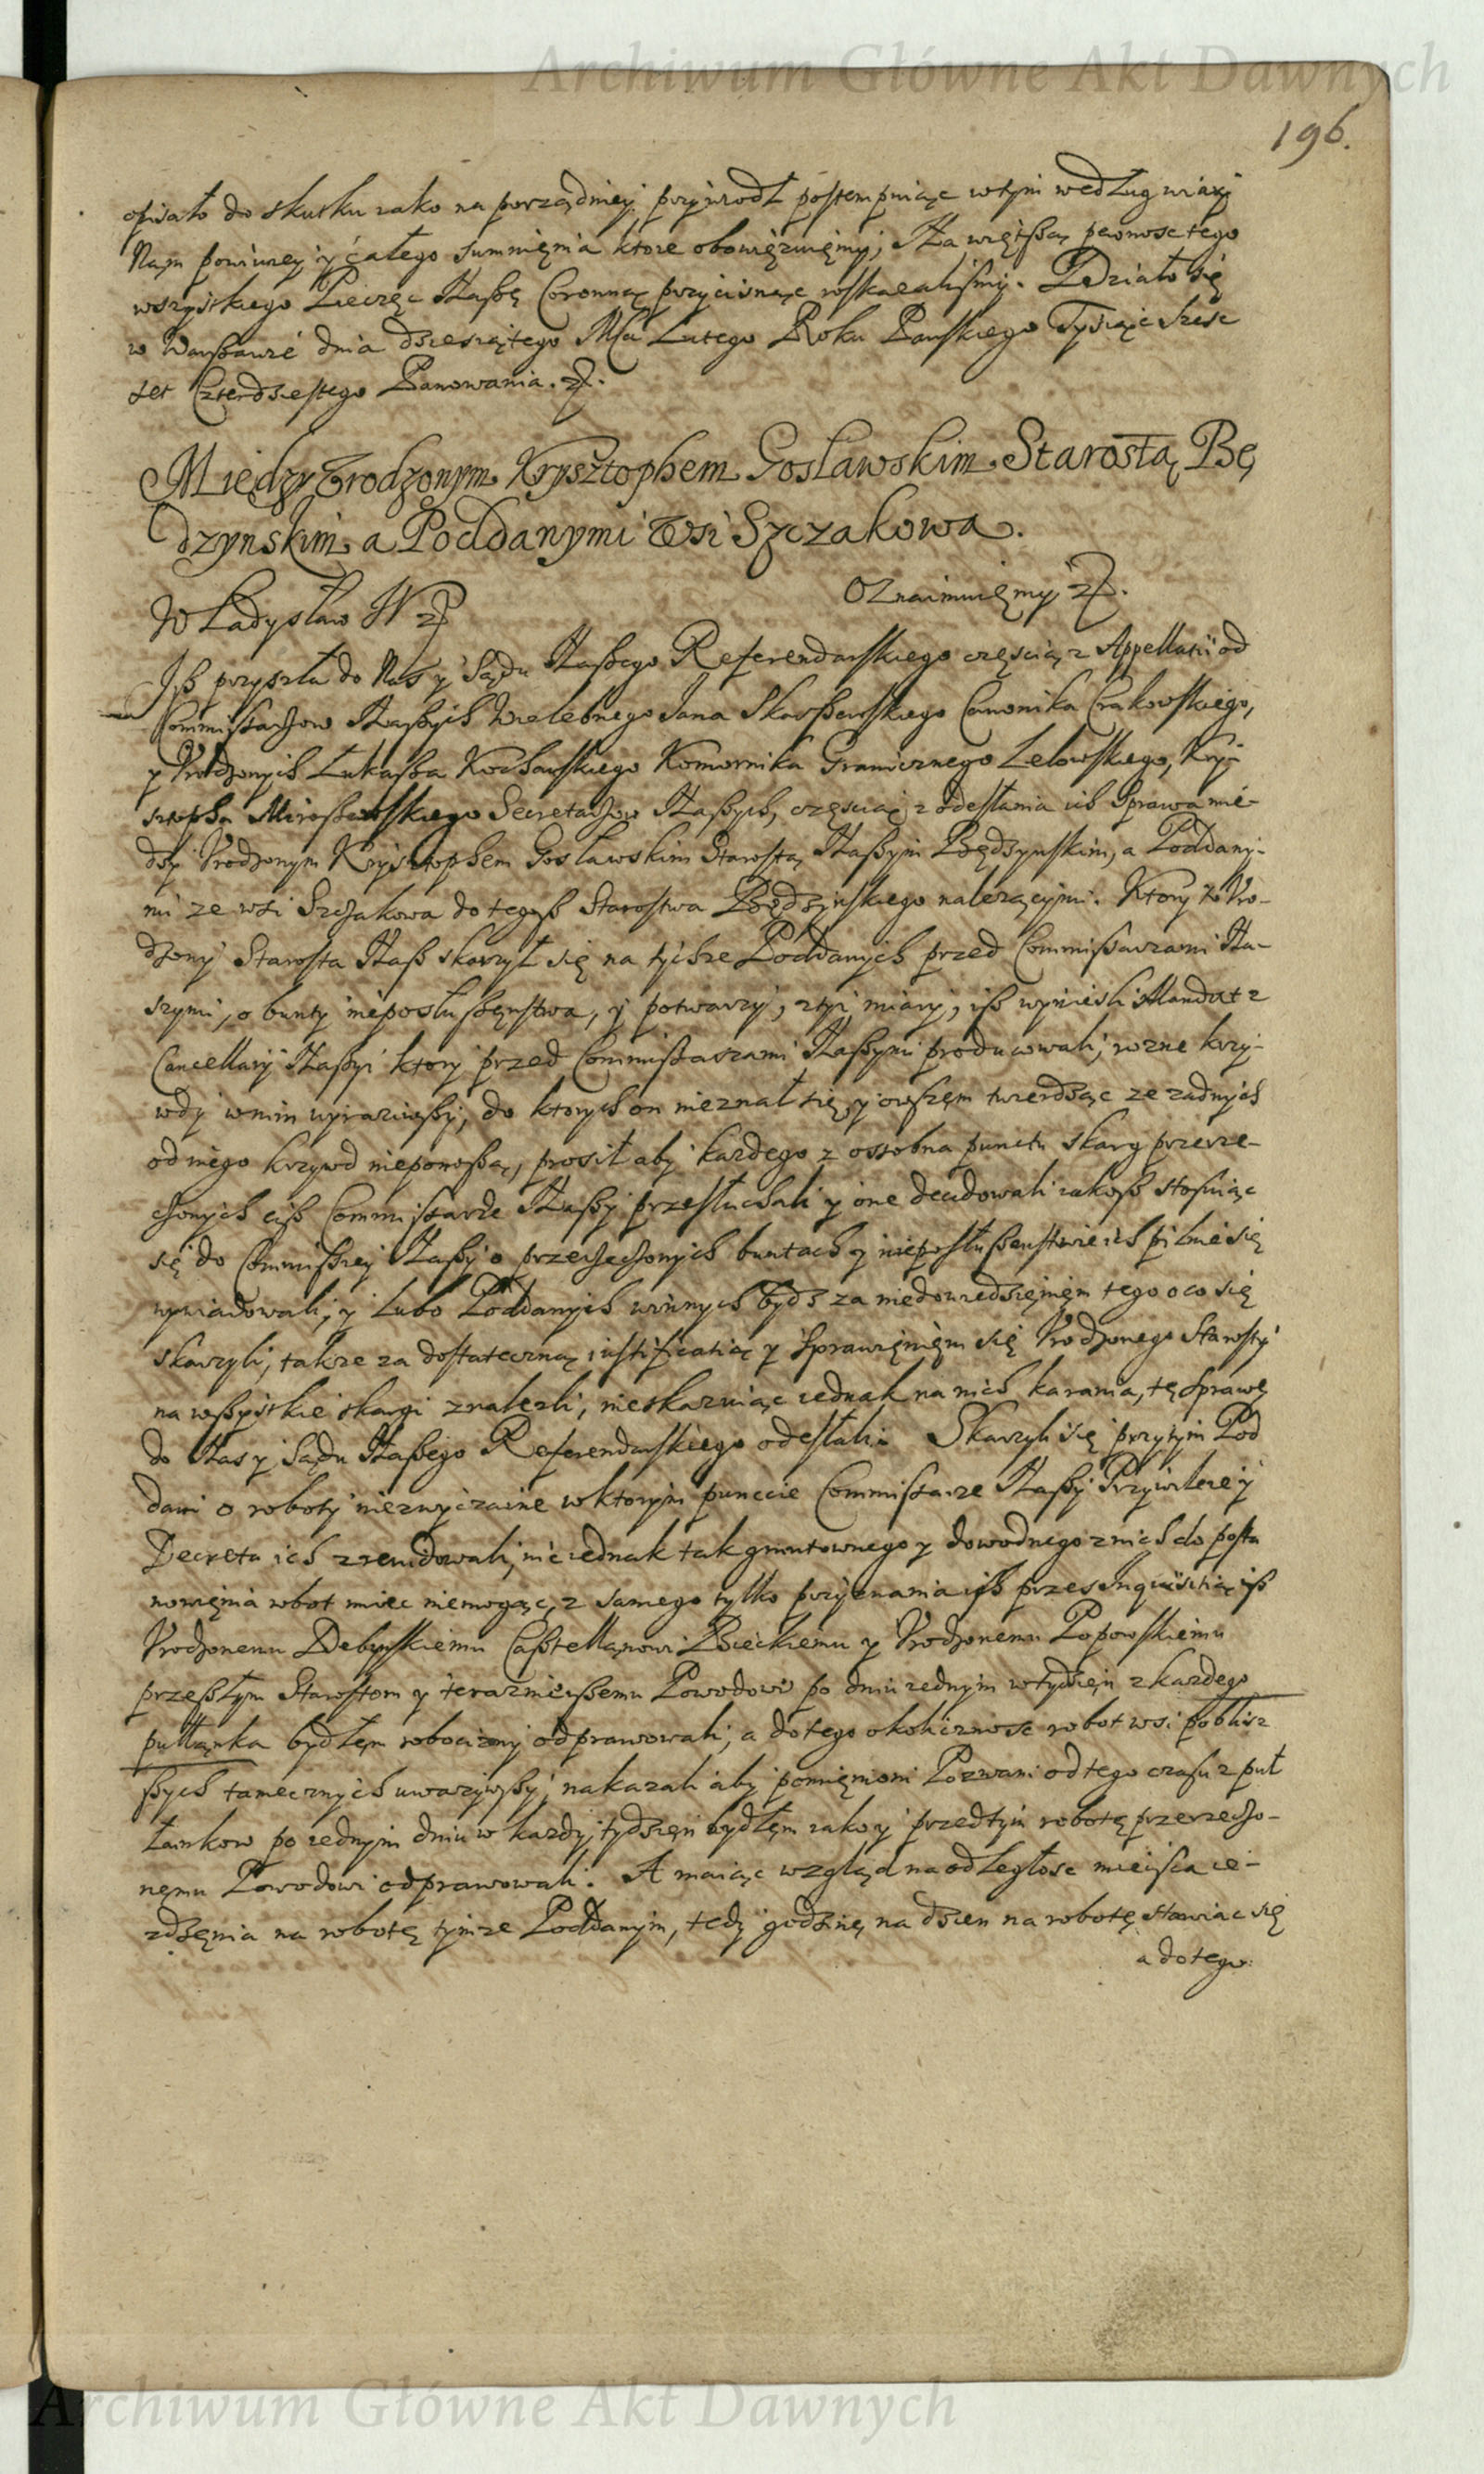 Archiwum Główne Akt Dawnych
196.
opisało do skutku iako na porządniey przywiodł postempuiąc wtym według wiary
Nam powinney y całego sumnięnia ktore obowięzuięmy, Na więtßą pewnosc tego
wszystkiego Pieczęc Naßę Coronną przycisnąc roskazalismy. Działo się
w Warßawie dnia dziesiątego Msca Lutego Roku Panskiego Tysiąc Szesc
set Czterdziestego Panowania. etc.
Między Urodzonym Krysztophem Gosławskim Starostą Bę
dzynskim a Poddanymi Wsi Szczakowa.
Władysław IV etc
Oznaimuięmy etc.
Iß przyszła do Nas y Sądu Naßego Referendarskiego częscią z Appellatii od
Commissarzow Naßych Wielebnego Jana Skarßewskiego Canonika Crakowskiego,
y Urodzonych Łukaßa Kochanskiego Komornika Granicznego Lelowskiego, Kry-
sztopha Miroßewskiego Secretarzow Naßych, częscią z odesłania ich Sprawa mie-
dzy Urodzonym Krysztophem Gosławskim Starostą Naßym Będzynskim, a Poddany-
mi ze wsi Szczakowa do tegoß Starostwa Będzynskiego należącymi. Ktory to Uro-
dzony Starosta Naß skarzył się na tychze Poddanych przed Commißarzami Na-
szymi, o bunty nieposłußęnstwa, y potwarzy, ztyi miary, iß wyniesli Mandat z
Cancellaryi Naßyi ktory przed Commißarzami Naßymi producowali, rozne krzy-
wdy wnim wyraziwßy, do ktorych on nieznał się, y owszęm twierdząc ze zadnych
odniego krzywd nieponoßą, prosił aby kazdego z ossobna punctu skarg przerze-
czonych ciß Commissarze Naßy przesłuchali y one decidowali iakoß stosuiąc
się do Commißiey Naßy o przerzeczonych buntach y nieposłußenstwie ich pilnie się
wywiadowali, y lubo Poddanych winnych bydz za niedowiedzięnięm tego o co się
skarzyli, takze za dostateczną iustificatią y Sprawięnięm się Urodzonego Starosty
na wßystkie skargi znalezli, nieskazuiąc iednak na nich karania, tę Sprawę
do Nas y Sądu Naßego Referendarskiego odesłali. Skarzyli się przytym Pod
dani o roboty niezwyczaine wktorym punccie Commissarze Naßy Przywileie y
Decreta ich zrewidowali, nic iednak tak gruntownego y dowodnego z nich do posta
nowięnia robot miec niemogąc, z samego tylko przyznania ich przes Inquisitią iß
Urodzonemu Debynskiemu Casßtellanowi Bieckiemu y Urodzonemu Popowskiemu
przeßłym Starostom y terazniejßemu Powodowi po dniu iednym wtydzięn z kazdego
pułłanka bydłęm robocizny odprawowali, a do tego okolicznosc robot wsi poblisz
ßych tamecznych uwazywßy, nakazali aby pomięnioni Pozwani od tego czasu z puł
łankow po iednym dniu w kazdy tydzięn bydłęm iako y przedtym robotę przerzeczo-
nęmu Powodowi odprawowali. A maiąc wzgląd na odległosc mieisca ie-
zdzęnia na robotę tymze Poddanym, tedy godzinę na dzien na robotę stawiac się
a do tego
Archiwum Główne Akt Dawnych